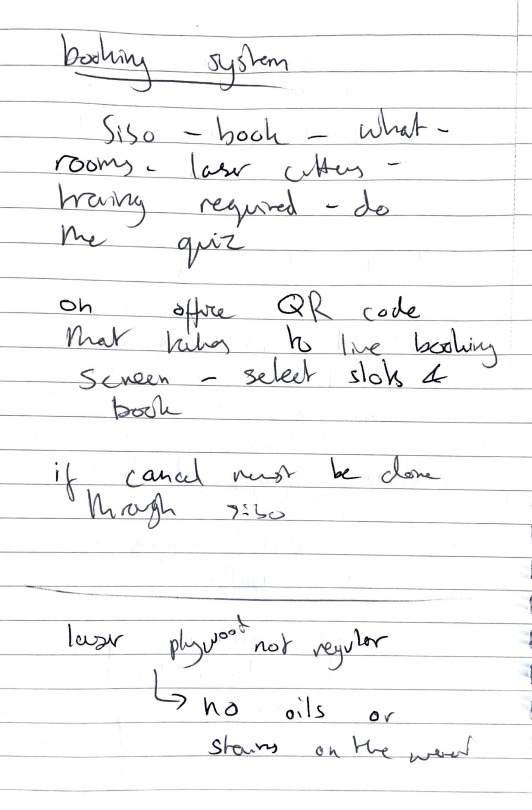 booking system
Siso - book - what -
rooms - laser cutters -
training required - do
the quiz
on office QR code
that takes to live booking
screen - select slots &
book
if cancel must be done
through siso
laser plywood not regular
no oils or
stains on the wood